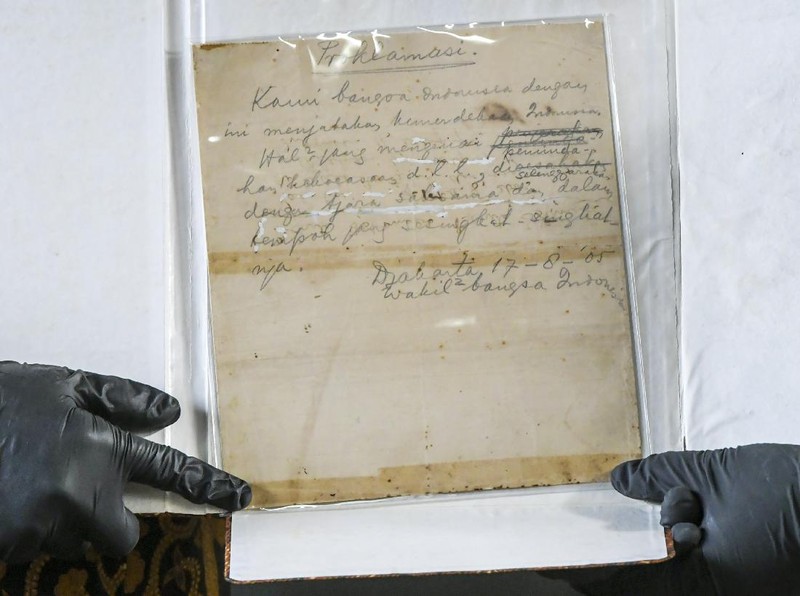 Proklamasi.
Kami bangsa Indonesia dengan
ini menjatakan kemerdekaan Indonesia.
Hal² jang mengenai pemindah-
han kekoeasaan d.l.l., dioesahakan
selenggarakan
dengan tjara saksama dan dalam
tempoh jang sesingkat-singkat-
nja.
Djakarta, 17-8-'05
Wakil² bangsa Indonesia